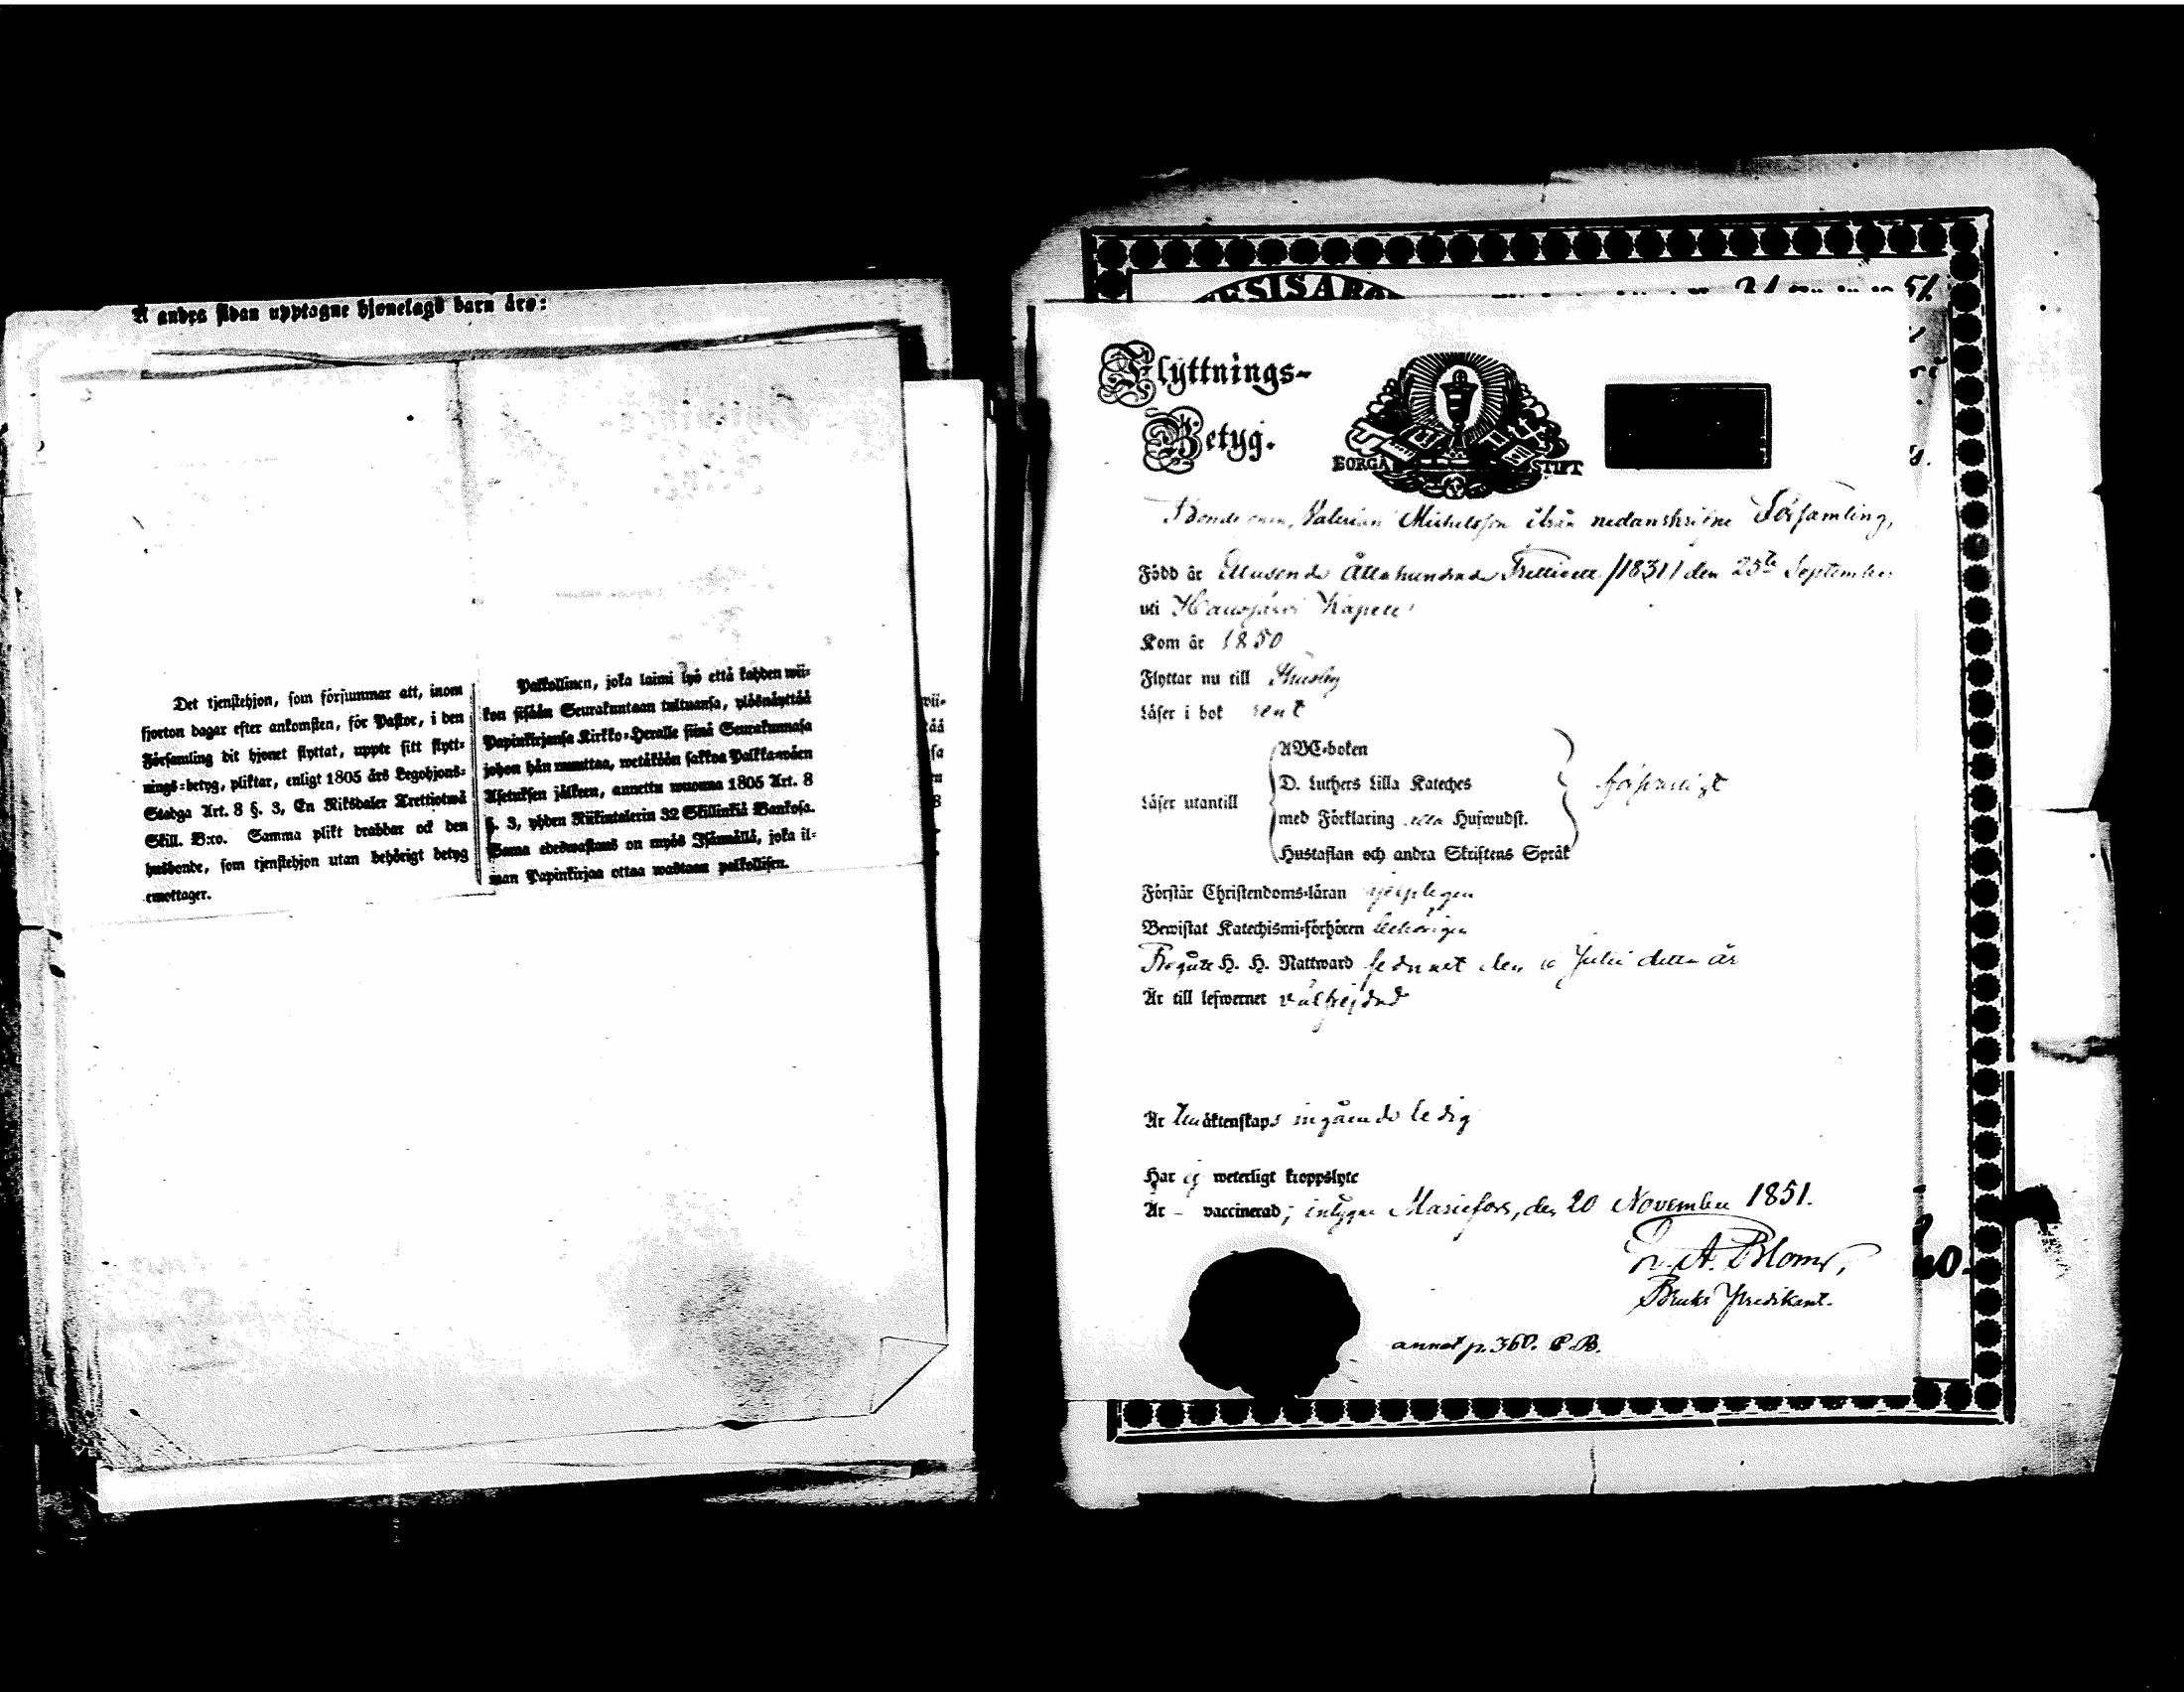 Å andra sidan upptagne hjonelags barn äro:
Det tjenstehjon, som försummar att, inom
fjorton dagar efter ankomsten, för Pastor, i den
Församling dit hjonet flyttat, uppte sitt flytt-
nings-betyg, pliktar, enligt 1805 års Legohjons-
Stadga Art. 8 §. 3, En Riksdaler Trettiotwå
Skill. B:co. Samma plikt drabbar ock den
husbonde, som tjenstehjon utan behörigt betyg
emottager.
Palkollinen, joka laimi lyö että kahden wii-
kon sisään Seurakuntaan tultuansa, ylösnäyttää
Papinkirjansa Kirkko-Herralle siinä Seurakunnasa
johon hän muuttaa, wetäköön sakkoa Palkka-wäen
Asetuksen jälkeen, annettu wuonna 1805 Art. 8
§. 3, yhden Riikintalerin 32 Skillinkiä Bankosa.
Sama edeswastaus on myös Isännällä, joka il-
man Papinkirjaa ottaa wastaan palkollisen.
Flyttnings-
Betyg.
BORGÅ STIFT
Bondesonen, Valerian Michelsson ifrån nedanskrifne Församling,
Född år Ettusende Åttahundrade Trettioett /1831/ den 25te September
uti Hausjärvi Kapell
Kom år 1850
Flyttar nu till Husby
Läser i bok rent
Läser utantill
ABC-boken
D. Luthers Lilla Kateches
med Förklaring Hufwudst.
Hustaflan och andra Skriftens Språk
försvarligt
Förstår Christendoms-läran
Bewistat Katechismi-förhören behörigen
Begått H. H. Nattward sednast den Julii detta år
Är till lefwernet välfrejdad
Är till äktenskaps ingående ledig
Har ej weterligt kroppslyte
Är - vaccinerad; intygar Mariefors, den 20 November 1851.
A. Blom,
Bruks Predikant.
annot p. 360. C.B.